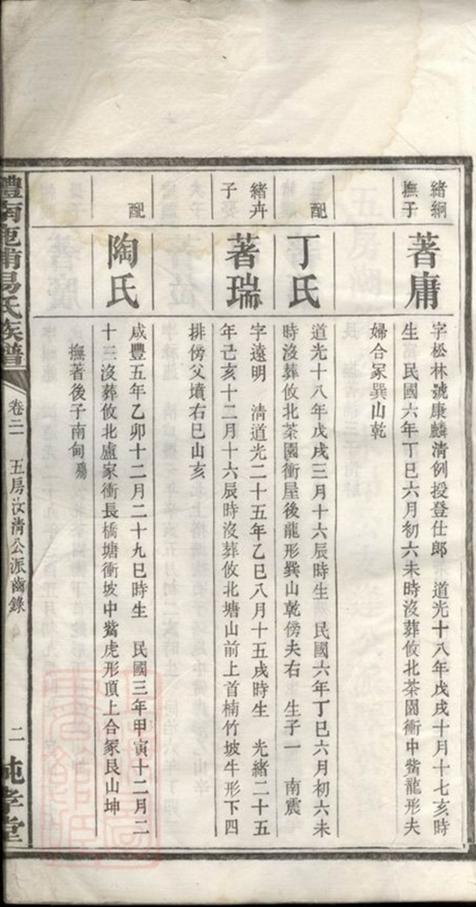 緒綗
撫子
著庸
字松林號康麟清例授登仕郎 道光十八年戊戌十月十七亥時
生 民國六年丁巳六月初六未時沒葬攸北茶園衝中觜龍形夫
婦合冢巽山乾
配
丁氏
道光十八年戊戌三月十六辰時生 民國六年丁巳六月初六未
時沒葬攸北茶園衝屋後龍形巽山乾傍夫右 生子一 南震
緒卉
子
著瑞
字遠明 清道光二十五年乙巳八月十五戌時生 光緒二十五
年己亥十二月十六辰時沒葬攸北塘山前上首楠竹坡牛形下四
排傍父墳右巳山亥
配
陶氏
咸豐五年乙卯十二月二十九巳時生 民國三年甲寅十二月二
十三沒葬攸北盧家衝長橋塘衝坡中觜虎形頂上合冢艮山坤
撫著後子南甸 殤
易氏族譜
卷三 五房汝清公派齒錄
二
純孝堂